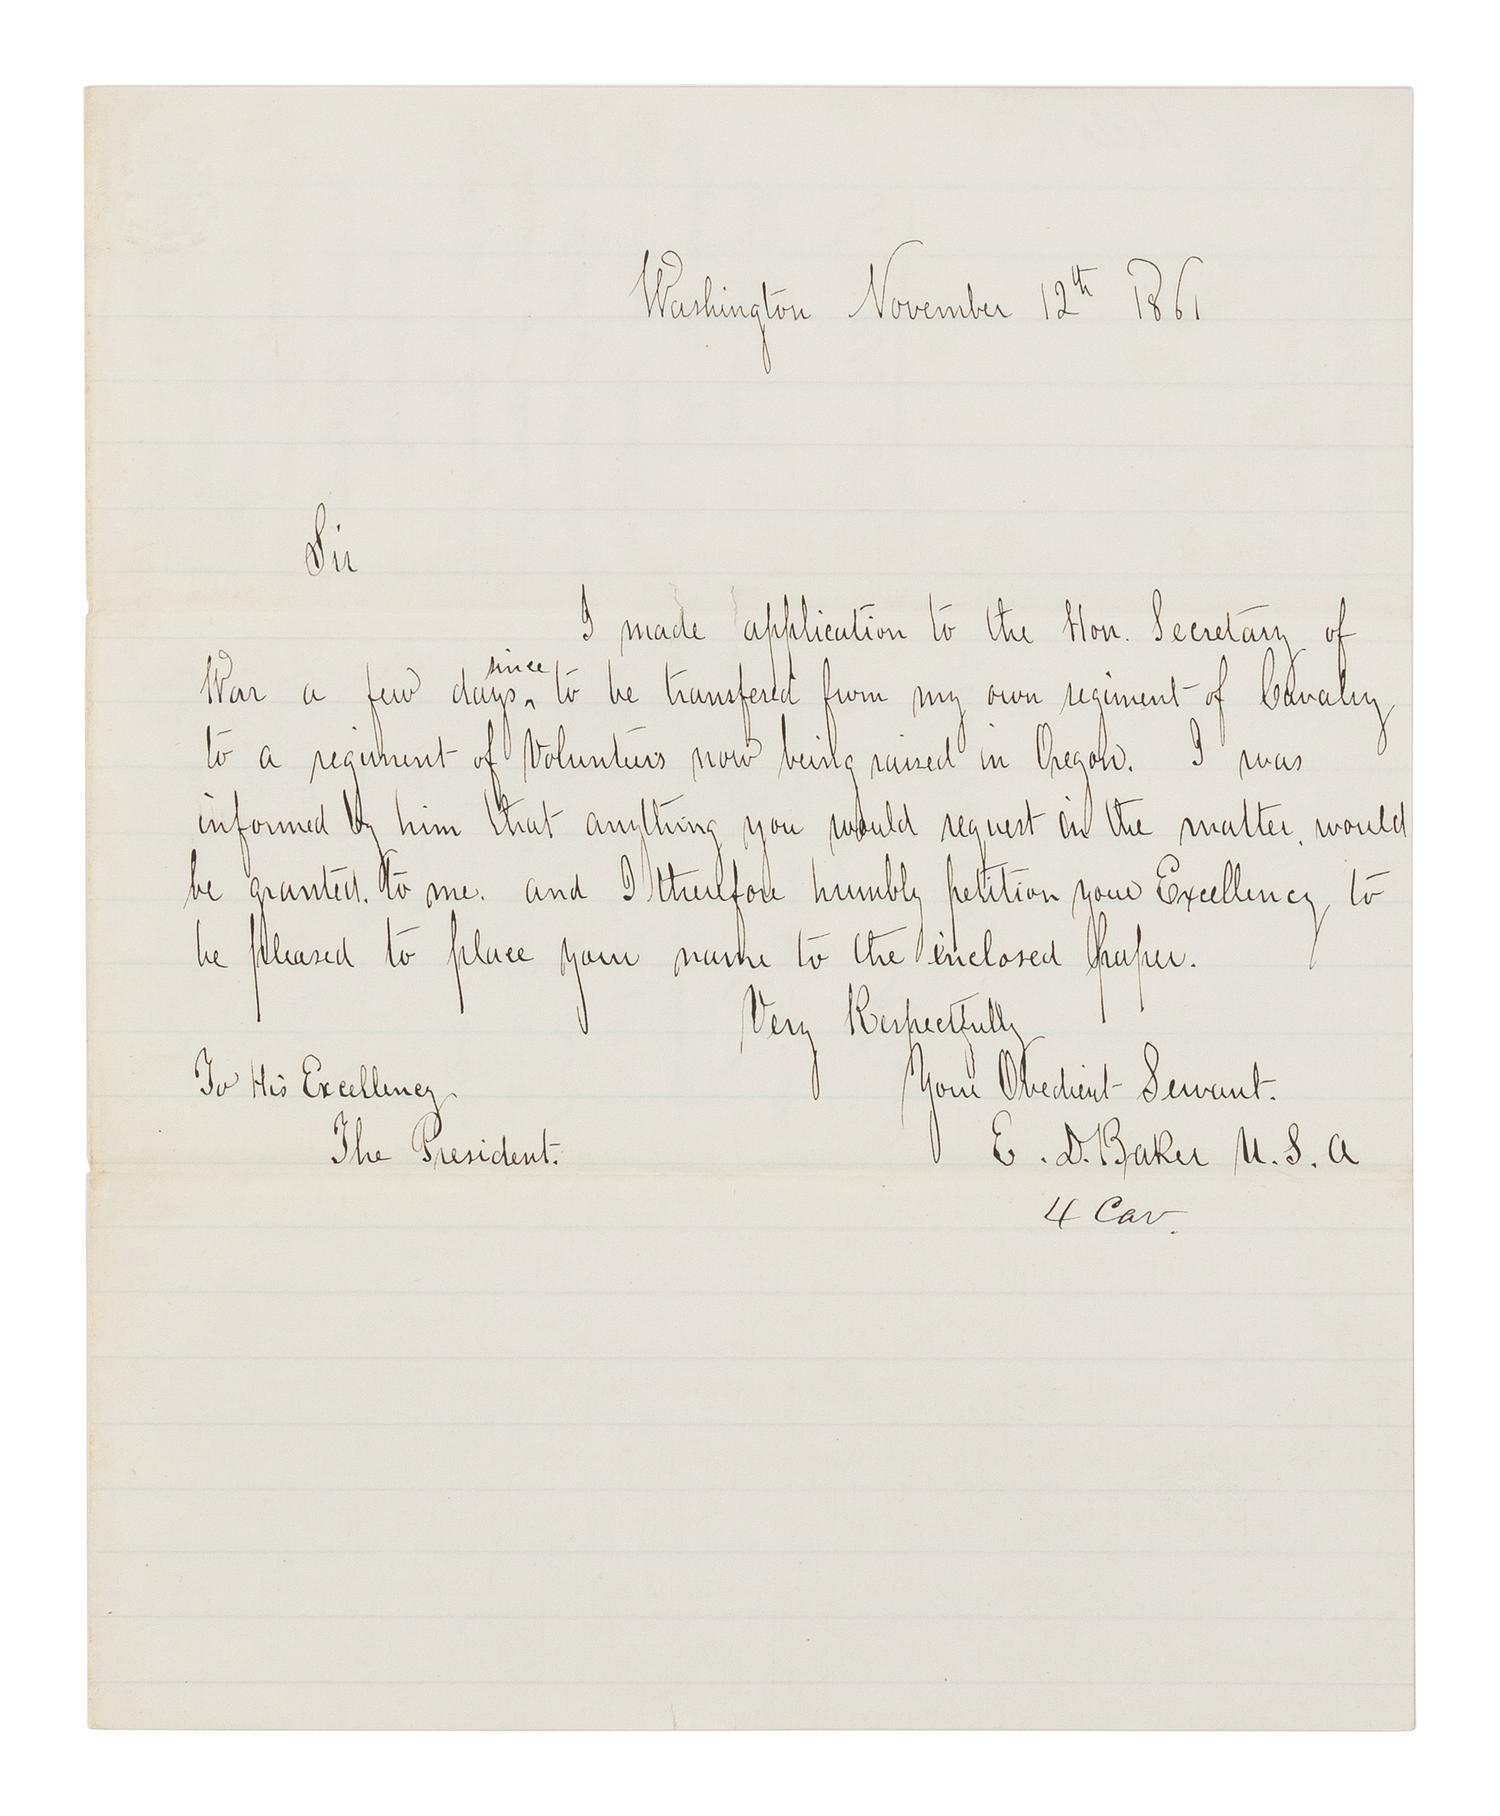 Washington November 12th 1861
Sir
I made application to the Hon. Secretary of
War a few days since to be transfered from my own regiment of Cavalry
to a regiment of Volunteers now being raised in Oregon. I was
informed by him that anything you would request in the matter, would
be granted. to me. and I therefore humbly petition your Excellency to
be pleased to place your name to the inclosed Paper.
Very Respectfully
Your Obedient Servant.
To His Excellency
The President.
E. D. Baker U.S.A
4 Cav.